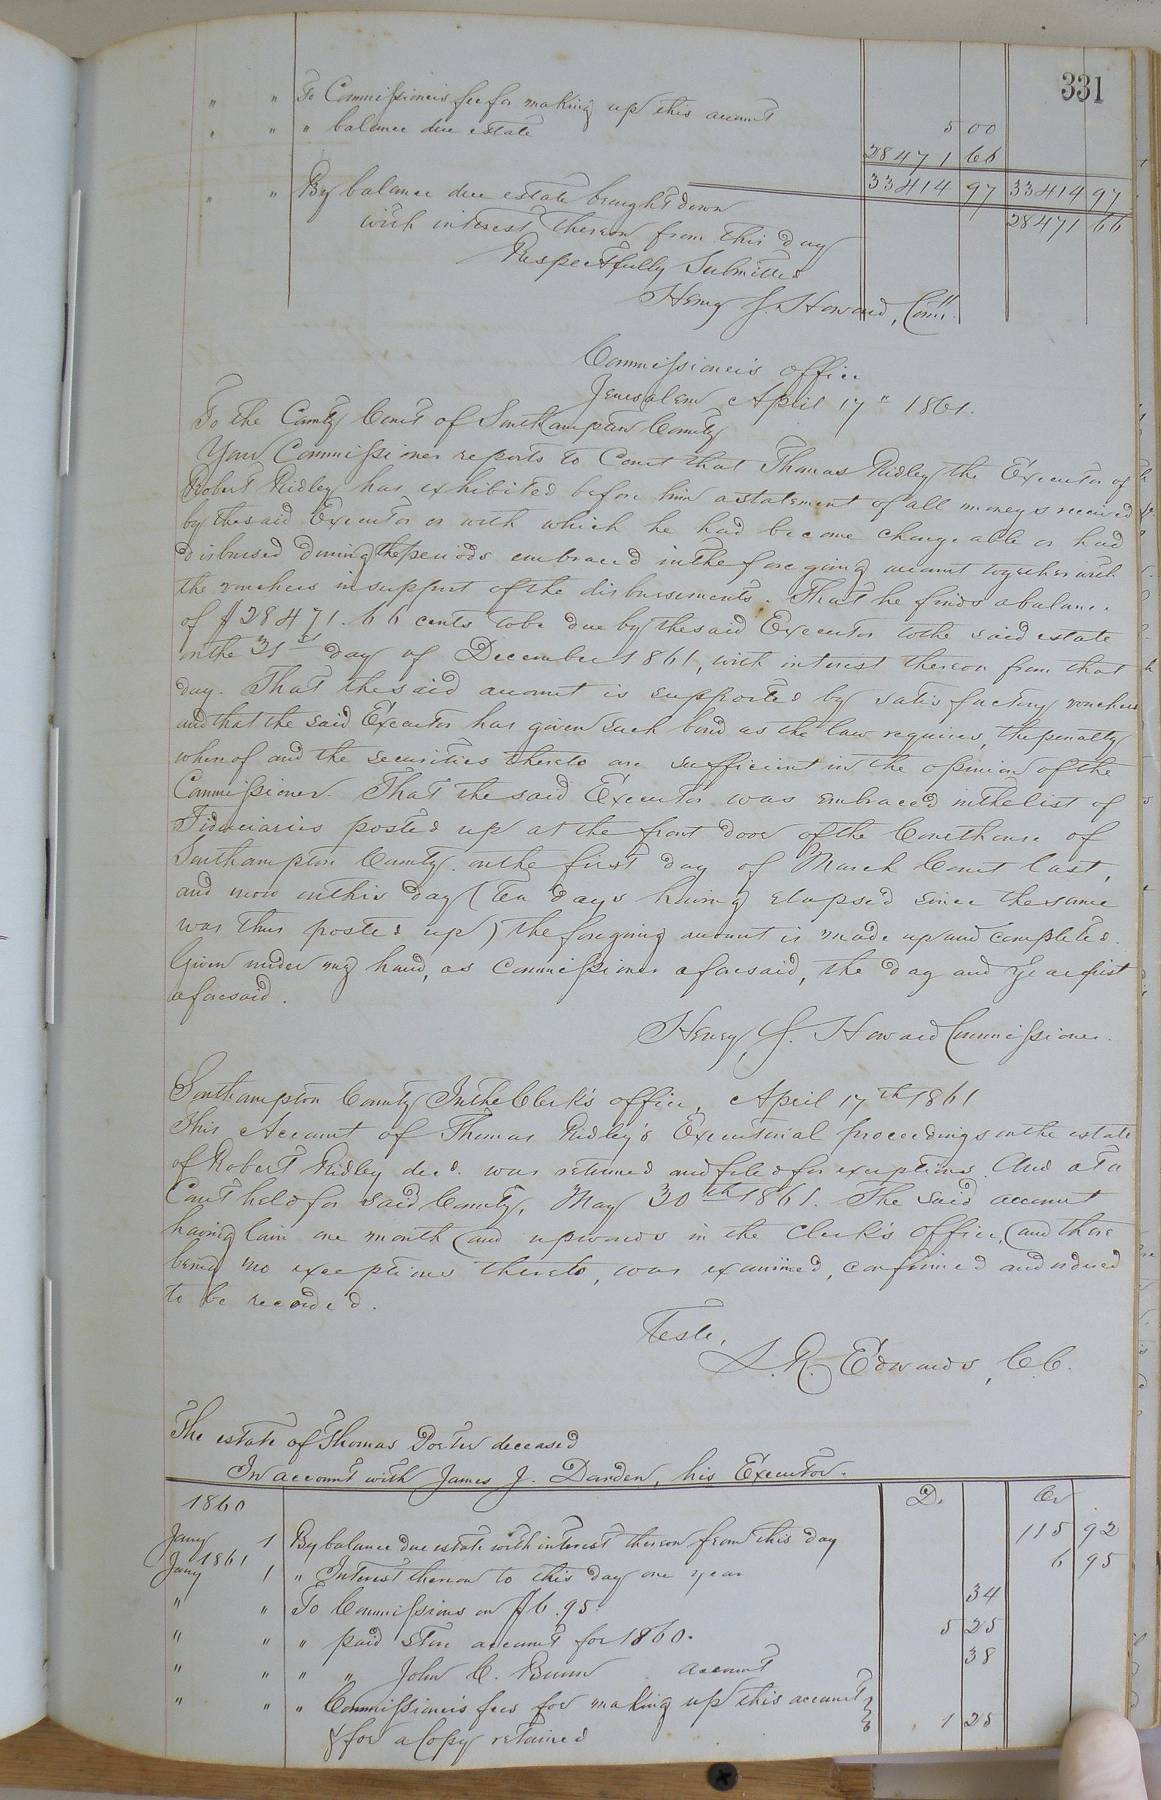 331
" " To Commissioner's fee for making up this account 5 00
" " " balance due estate 28471 66
33414 97 33414 97
" " By balance due estate brought down 28471 66
with interest thereon from this day
Respectfully Submitted
Henry J. Howard, Comr.
Commissioner's office
Jerusalem April 17" 1861.
To the County Court of Southampton County
Your Commissioner reports to Court that Thomas Ridley the Executor of
Robert Ridley has exhibited before him a statement of all moneys received
by the said Executor or with which he had become chargeable or had
disbursed during the periods embraced in the foregoing account together with
the vouchers in support of the disbursements. That he finds a balance
of $28471.66 cents to be due by the said Executor to the said estate
on the 31st day of December 1861, with interest thereon from that
day. That the said account is supported by satisfactory vouchers
and that the said Executor has given such bond as the law requires, the penalty
whereof and the securities thereto are sufficient in the opinion of the
Commissioner. That the said Executor was embraced in the list of
Fiduciaries posted up at the front door of the Courthouse of
Southampton County on the first day of March Court last,
and now on this day (ten days having elapsed since the same
was thus posted up) the foregoing account is made up and completed.
Given under my hand, as Commissioner aforesaid, the day and year first
aforesaid.
Henry J. Howard Commissioner.
Southampton County In the Clerk's office, April 17th 1861
This Account of Thomas Ridley's Executorial proceedings on the estate
of Robert Ridley decd. was returned and filed for exceptions. And at a
Court held for said County, May 30th 1861. The said account
having lain one month and upwards in the Clerk's office, and there
being no exceptions thereto, was examined, confirmed and ordered
to be recorded.
Teste,
L. R. Edwards, C.C.
The estate of Thomas Porter deceased
In account with James J. Darden, his Executor.
1860 D. Cr
Jany 1 By balance due estate with interest thereon from this day 115 92
1861 Jany 1 " Interest thereon to this day one year 6 95
" " To Commissions on $6.95 34
" " " paid store account for 1860. 5 25
" " " " John C. Bunn account 38
" " " Commissioner's fees for making up this account
& for a Copy retained 1 25